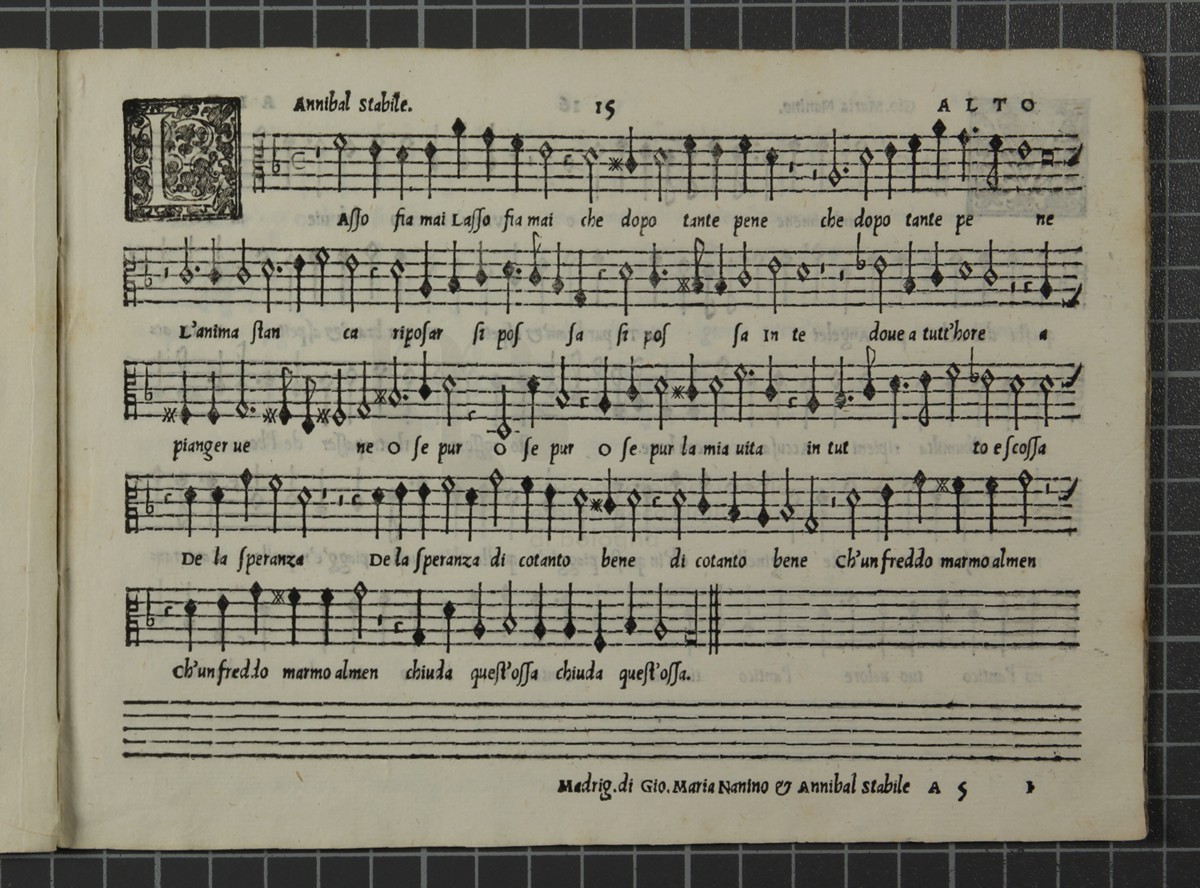 Annibal Stabile. 15 ALTO
L
Aſſo fia mai Laſſo fia mai che dopo tante pene che dopo tante pe ne
L'anima ſtan ca ripoſar ſi poſ ſa ſi poſ ſa In te doue a tutt'hore a
pianger ue ne O ſe pur O ſe pur O ſe pur la mia uita in tut to e ſcoſſa
De la ſperanza De la ſperanza di cotanto bene di cotanto bene Ch'un freddo marmo almen
Ch'un freddo marmo almen chiuda queſt'oſſa chiuda queſt'oſſa.
Madrig. di Gio. Maria Nanino & Annibal Stabile A 5